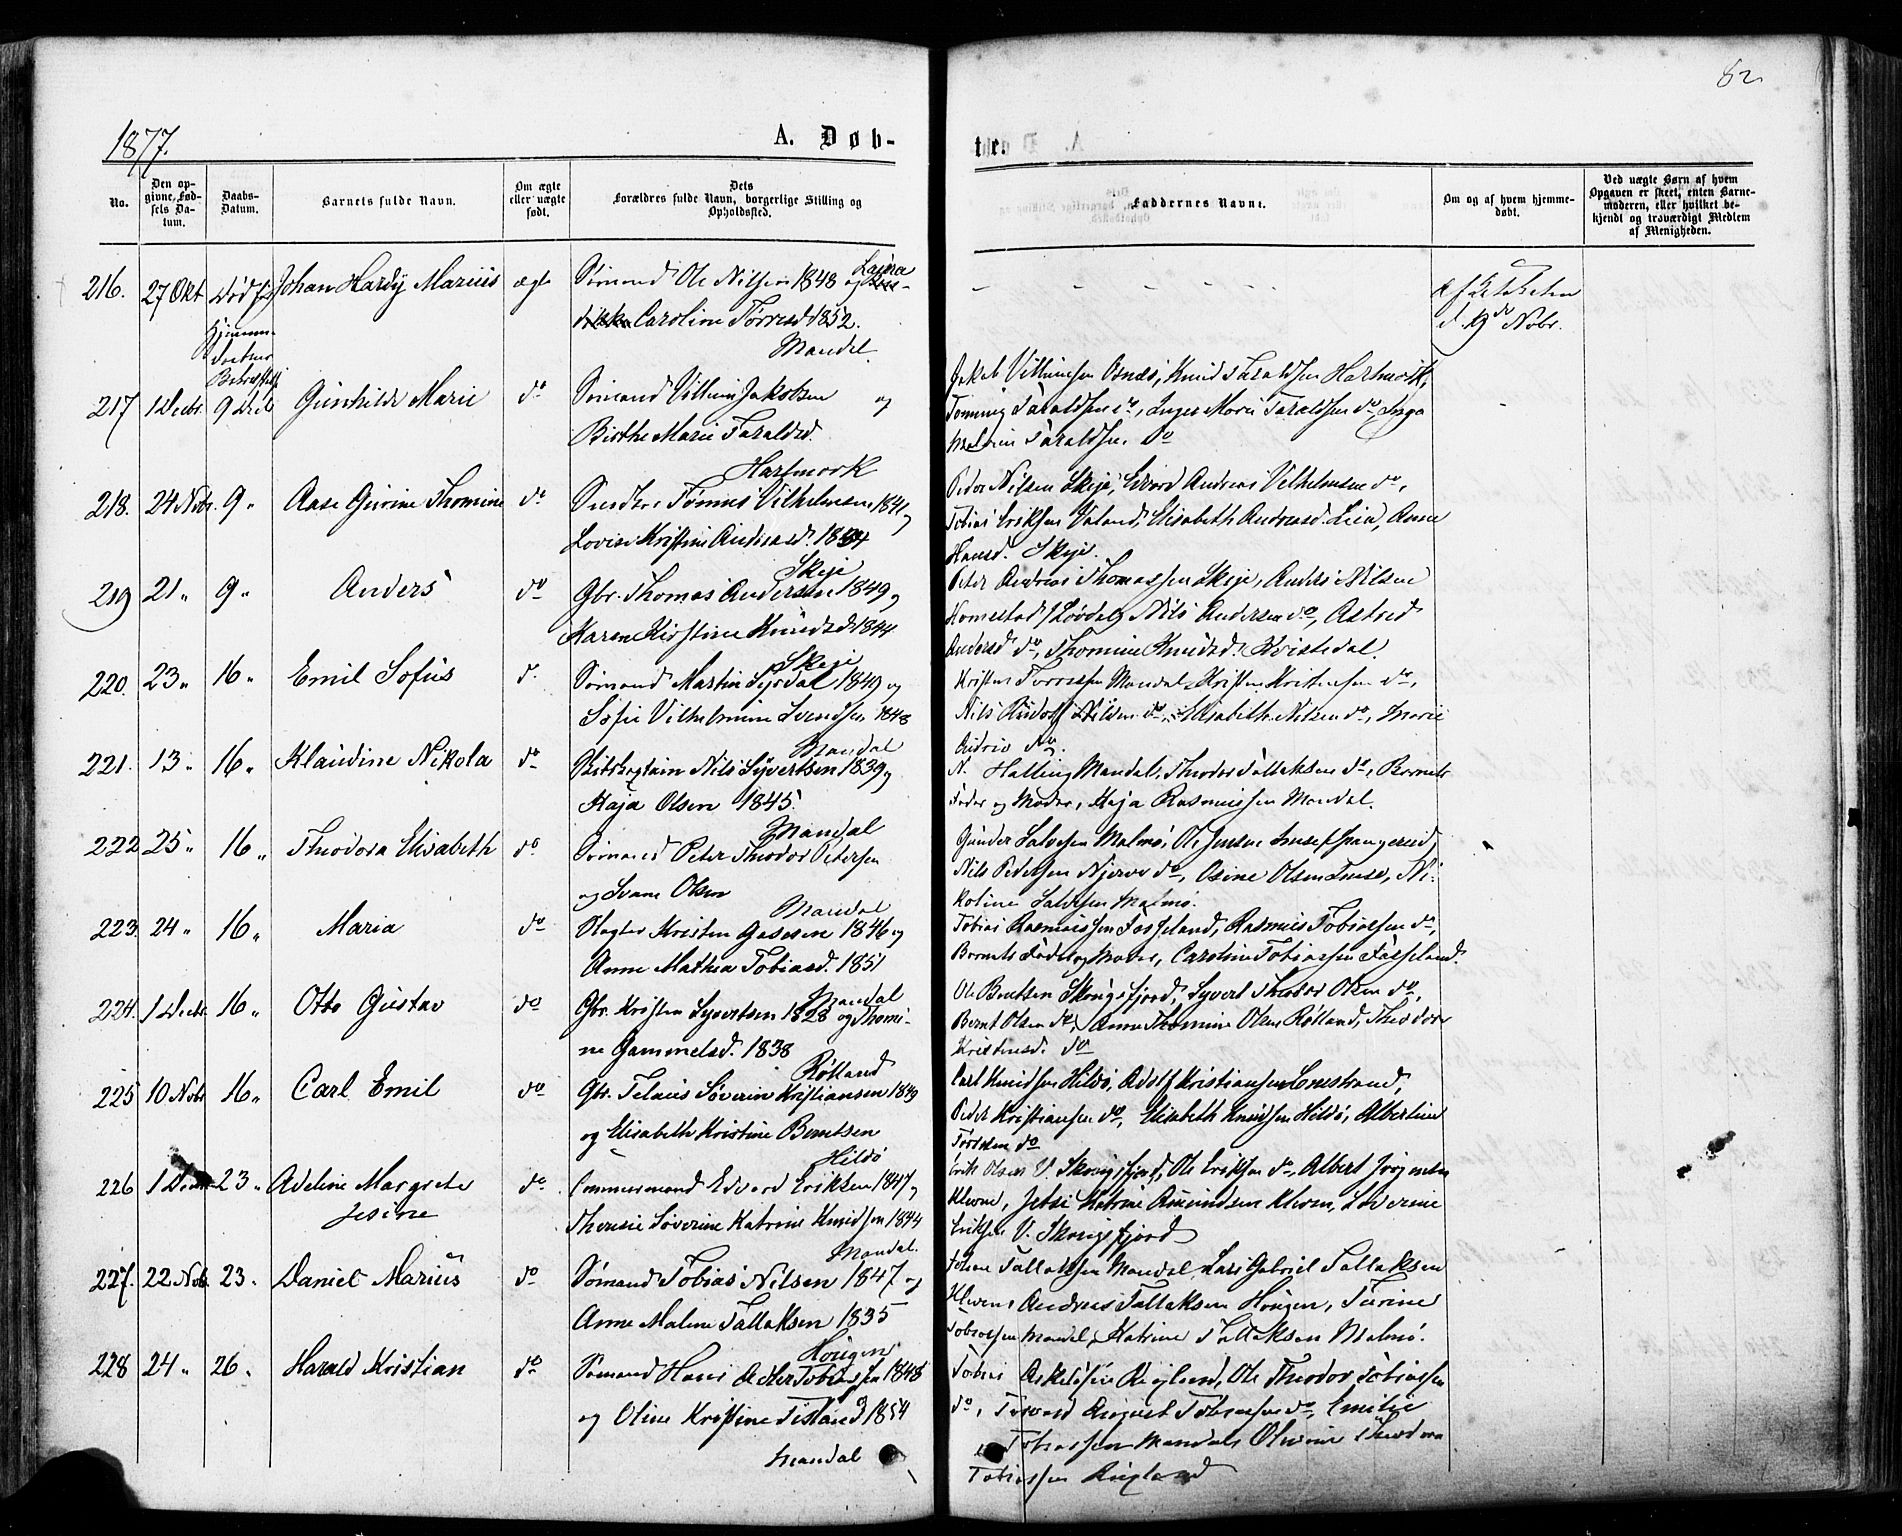 82
1877.
A. Døb-
ten
No.
Den op-
givne, Fød-
sels Da-
tum.
Daabs-
Datum.
Barnets fulde Navn.
Om ægte
eller uægte
født.
Dets
Forældres fulde Navn, borgerlige Stilling og
Opholdssted.
Faddernes Navne.
Om og af hvem hjemme-
døbt.
Ved uægte Børn af hvem
Opgaven er skeet, enten Barne-
moderen, eller hvilket be-
kjendt og troværdigt Medlem
af Menigheden.
216. 27 Okt Johan Hardy Marius ægte Sømand Ole Nilsen 1848 og Laura
Caroline Tørresd 1852.
Mandal
d. 9de Nobr.
217 1 Decbr. 9 Gunhilde Marie do Sømand Villum Jakobsen og
Birthe Marie Taraldsd.
Hartmark
Jakob Villumsen Osnæs, Knud Taraldsen Hartmark,
Tønnes Taraldsen do, Inger Marie Taraldsen do, Inga
Taraldsen do
218. 24 Nobr. 9 " Aase Gurine Thomine do Tønnes Vilhelmsen 1841 og
Lovise Kristine Andreasd. 1854
Skeje
Peder Nilsen Skeje, Edvard Andreas Vilhelmsen do,
Tobias Eriksen Valand, Elisabeth Andreasd. Lien, Anne
Hansd. Skeje.
219 21 " 9 " Anders do Gbr. Thomas Andersen 1849 og
Karen Kirstine Knudsd. 1844
Skeje
Peter Andreas Thomassen Skeje, Anders Nilsen
Homestad / Løvdal, Nils Andersen do, Astred
Andersd do, Thomine Knudsd. Kvistedal.
220. 23 " 16 " Emil Sofus do Sømand Martin Syrdal 1849 og
Sofie Vilhelmine Svendsen 1848
Mandal
Kristen Torressen Mandal, Kristen Kristensen do,
Nils Rudolf Nilsen do, Elisabeth Nilsen do, Marie
do.
221. 13 " 16 " Klaudine Nikola do Skibskaptain Nils Syvertsen 1839 og
Kaja Olsen 1845.
Mandal
N. Halling Mandal, Theodor Tallaksen do, Barnets
Fader og Moder, Kaja Rasmussen Mandal.
222 25 " 16 " Theodora Elisabeth do Sømand Peter Theodor Petersen
og Svane Olsen
Mandal
Gunder Salvesen Malmø, Ole Jensen Spangereid,
Nils Pedersen Njerve do, Osine Olsen, Ni-
koline Salvesen Malmø.
223. 24 " 16 " Maria do Slagter Kristen Gasesen 1846 og
Anne Mathea Tobiasd. 1851
Mandal
Tobias Rasmussen Fasseland, Rasmus Tobiassen do,
Barnets Fader og Moder, Caroline Tobiassen Fasseland.
224. 1 Decbr. 16 " Otto Gustav do Gbr. Kristen Syvertsen 1828 og Thomi-
ne Gammelsd. 1838
Røtland
Ole Berntsen Skougsfjord, Syvert Theodor Olsen do,
Bernt Olsen do, Anne Thomine Olsen Røtland, Theodor
Kristensd. do
225 10 Nobr 16 " Carl Emil do Gbr. Telaus Severin Kristiansen 1849
og Elisabeth Kristine Berntsen
Hildø
Carl Knudsen Hildø, Adolf Kristiansen,
Peder Kristiansen do, Elisabeth Knudsen Hildø, Albertine
do
226 1 Decbr 23 " Adeline Margrete
Jesine do Tømmermand Edvard Eriksen 1847 og
Therese Severine Katrine Knudsen 1844
Mandal.
Erik Olsen V. Skougsfjord, Ole Eriksen do, Albert Jørgensen
Kleven, Jetse Katrine Amundsen Kleven, Severine
Eriksen V. Skougsfjord
227. 22 Nob. 23 " Daniel Marius do Sømand Tobias Nilsen 1847 og
Anne Malene Tallaksen 1835
Hougen
Johan Tallaksen Mandal, Lars Gabriel Tallaksen
Kleven, Andreas Tallaksen Hougen, Turine
Tobiassen Mandal, Katrine Tallaksen Malmø.
228 24 " 26 " Harald Kristian do Sømand Hans Peder Tobiassen 1848
og Oline Kristine Tistand 1854
Mandal
Tobias Askelsen Røgland, Ole Theodor Tobiassen
do, August Tobiassen do, Emilie
Tobiassen Mandal, Theodora
Tobiassen